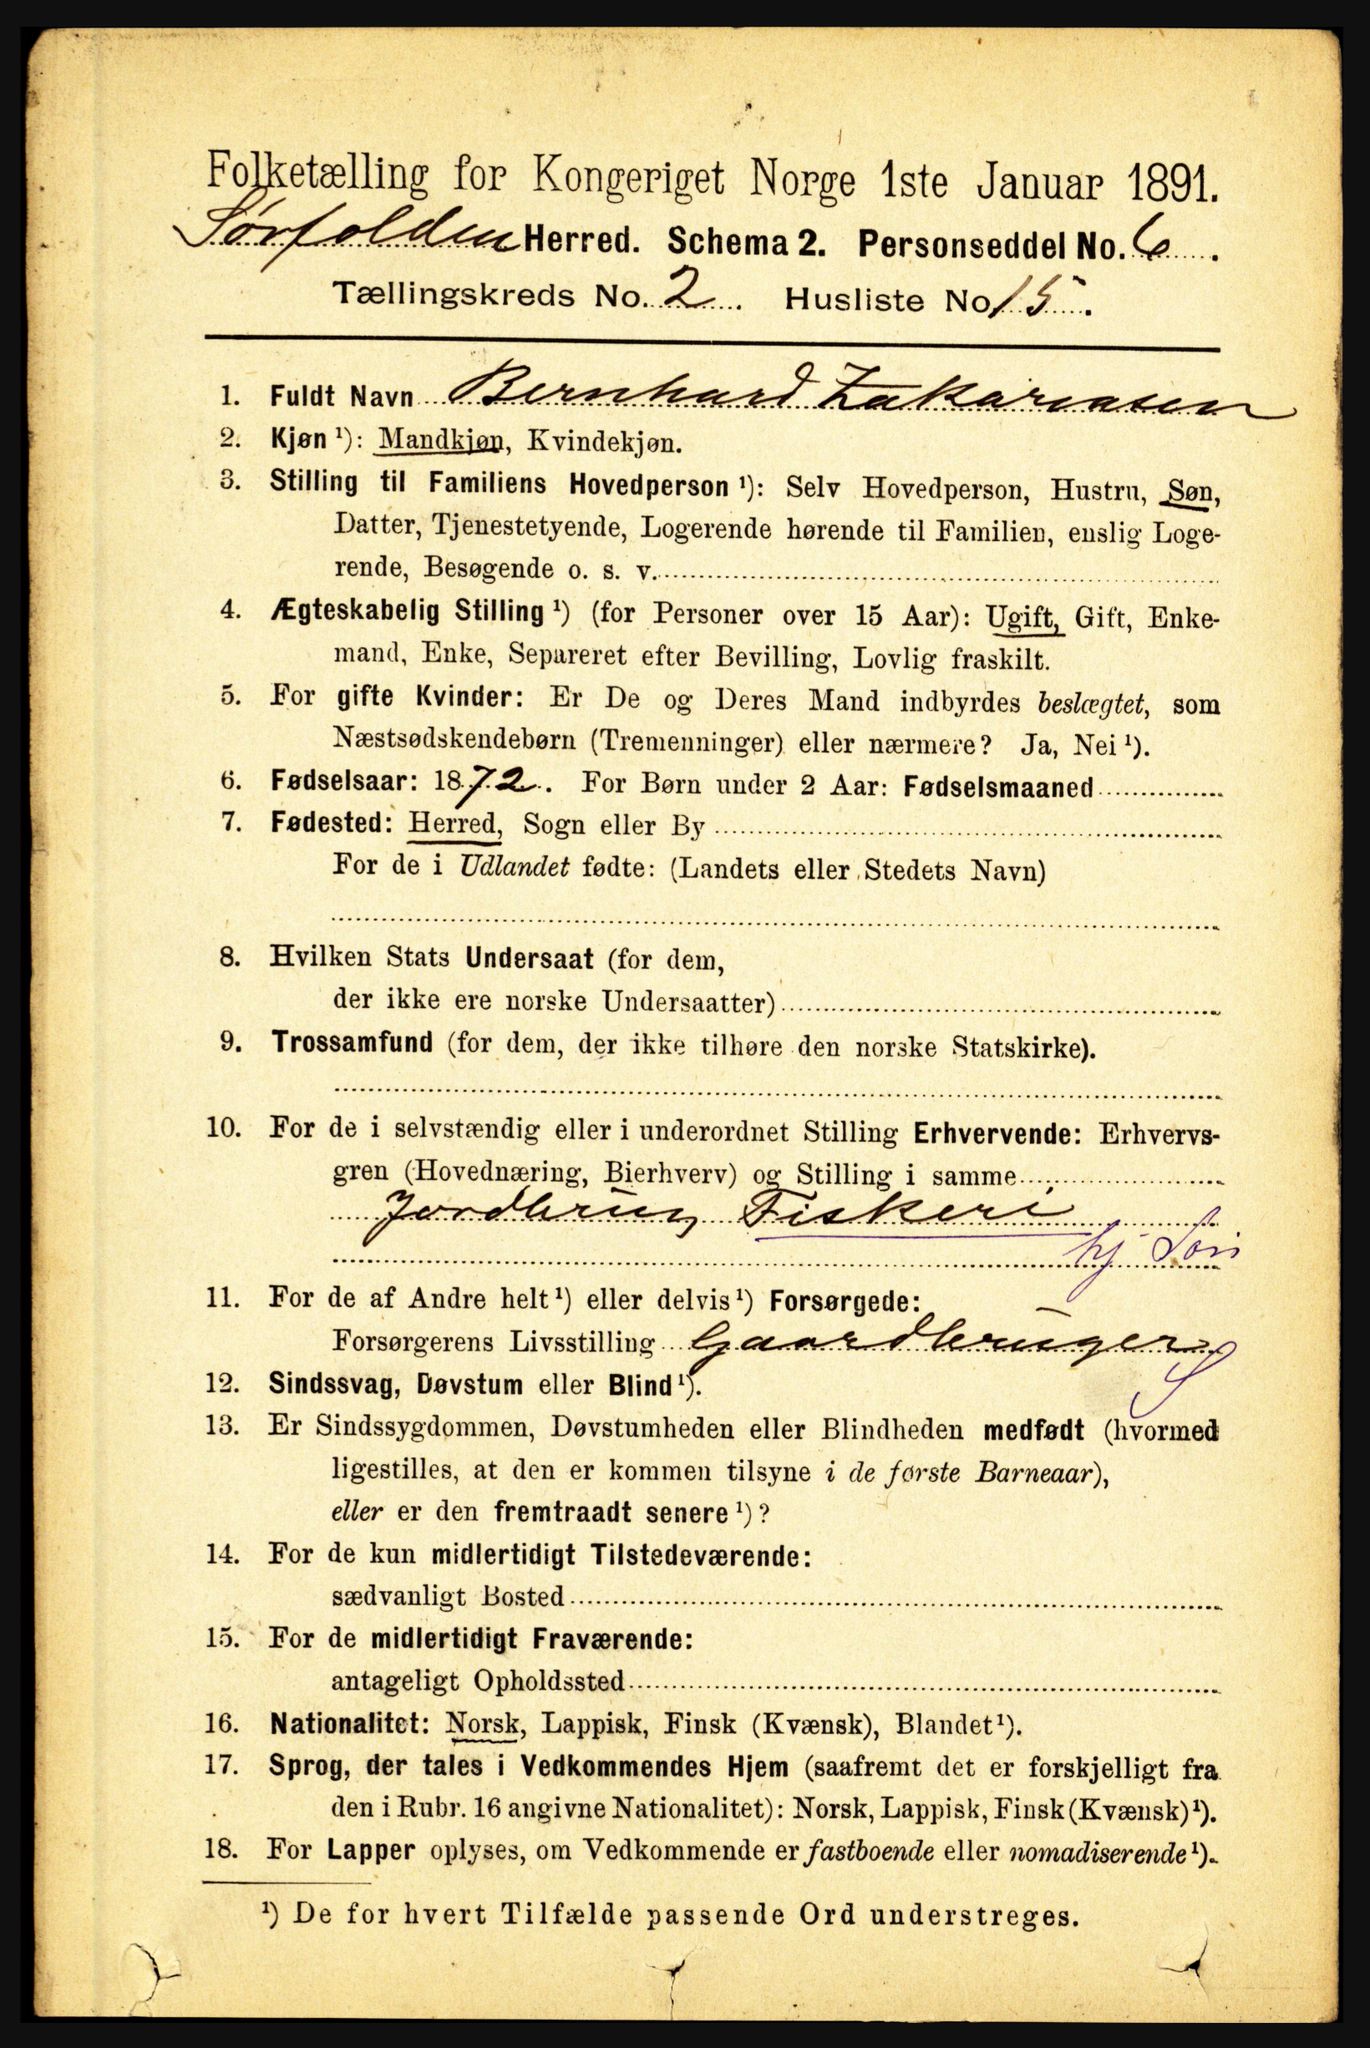 Folketælling for Kongeriget Norge 1ste Januar 1891.
Sørfolden Herred. Schema 2. Personseddel No. 6.
Tællingskreds No. 2. Husliste No. 15.
1. Fuldt Navn Bernhard Zakariasen
2. Kjøn ¹): Mandkjøn, Kvindekjøn.
3. Stilling til Familiens Hovedperson ¹): Selv Hovedperson, Hustru, Søn,
Datter, Tjenestetyende, Logerende hørende til Familien, enslig Loge-
rende, Besøgende o. s. v.
4. Ægteskabelig Stilling ¹) (for Personer over 15 Aar): Ugift, Gift, Enke-
mand, Enke, Separeret efter Bevilling, Lovlig fraskilt.
5. For gifte Kvinder: Er De og Deres Mand indbyrdes beslægtet, som
Næstsødskendebørn (Tremenninger) eller nærmere? Ja, Nei ¹).
6. Fødselsaar: 1872. For Børn under 2 Aar: Fødselsmaaned
7. Fødested: Herred, Sogn eller By
For de i Udlandet fødte: (Landets eller Stedets Navn)
8. Hvilken Stats Undersaat (for dem,
der ikke ere norske Undersaatter)
9. Trossamfund (for dem, der ikke tilhøre den norske Statskirke).
10. For de i selvstændig eller i underordnet Stilling Erhvervende: Erhvervs-
gren (Hovednæring, Bierhverv) og Stilling i samme
Jordbrug Fiskeri
hj Søn
11. For de af Andre helt ¹) eller delvis ¹) Forsørgede:
Forsørgerens Livsstilling Gaardbruger
S
12. Sindssvag, Døvstum eller Blind ¹).
13. Er Sindssygdommen, Døvstumheden eller Blindheden medfødt (hvormed
ligestilles, at den er kommen tilsyne i de første Barneaar),
eller er den fremtraadt senere ¹)?
14. For de kun midlertidigt Tilstedeværende:
sædvanligt Bosted
15. For de midlertidigt Fraværende:
antageligt Opholdssted
16. Nationalitet: Norsk, Lappisk, Finsk (Kvænsk), Blandet ¹).
17. Sprog, der tales i Vedkommendes Hjem (saafremt det er forskjelligt fra
den i Rubr. 16 angivne Nationalitet): Norsk, Lappisk, Finsk (Kvænsk) ¹).
18. For Lapper oplyses, om Vedkommende er fastboende eller nomadiserende ¹).
¹) De for hvert Tilfælde passende Ord understreges.